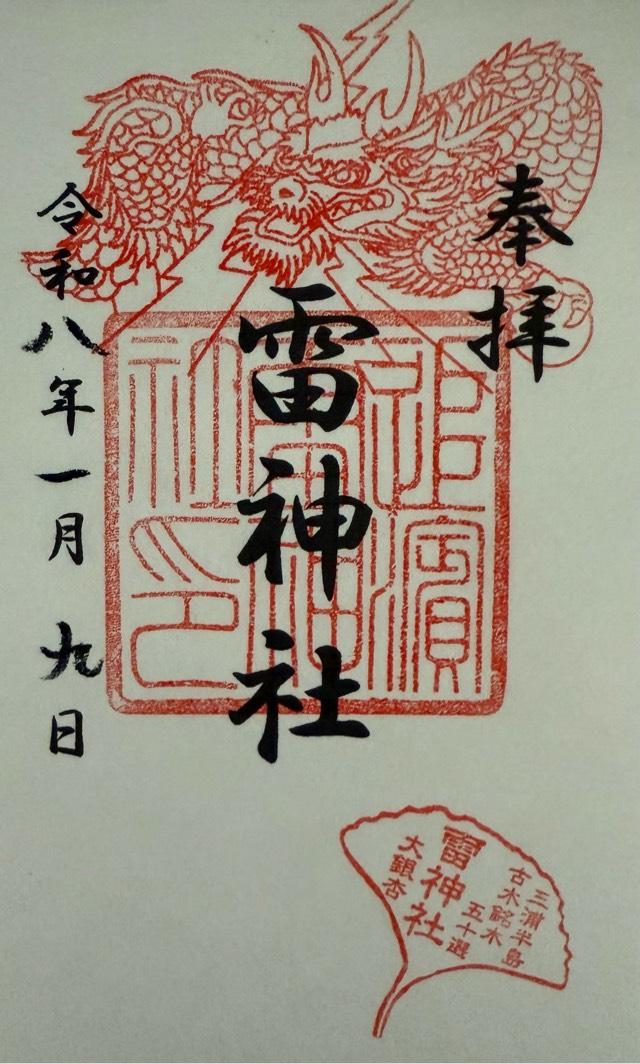 奉拝
雷神社
令和八年一月九日
追濱
雷神
社印
三浦半島
古木銘木
五十選
雷神社
大銀杏